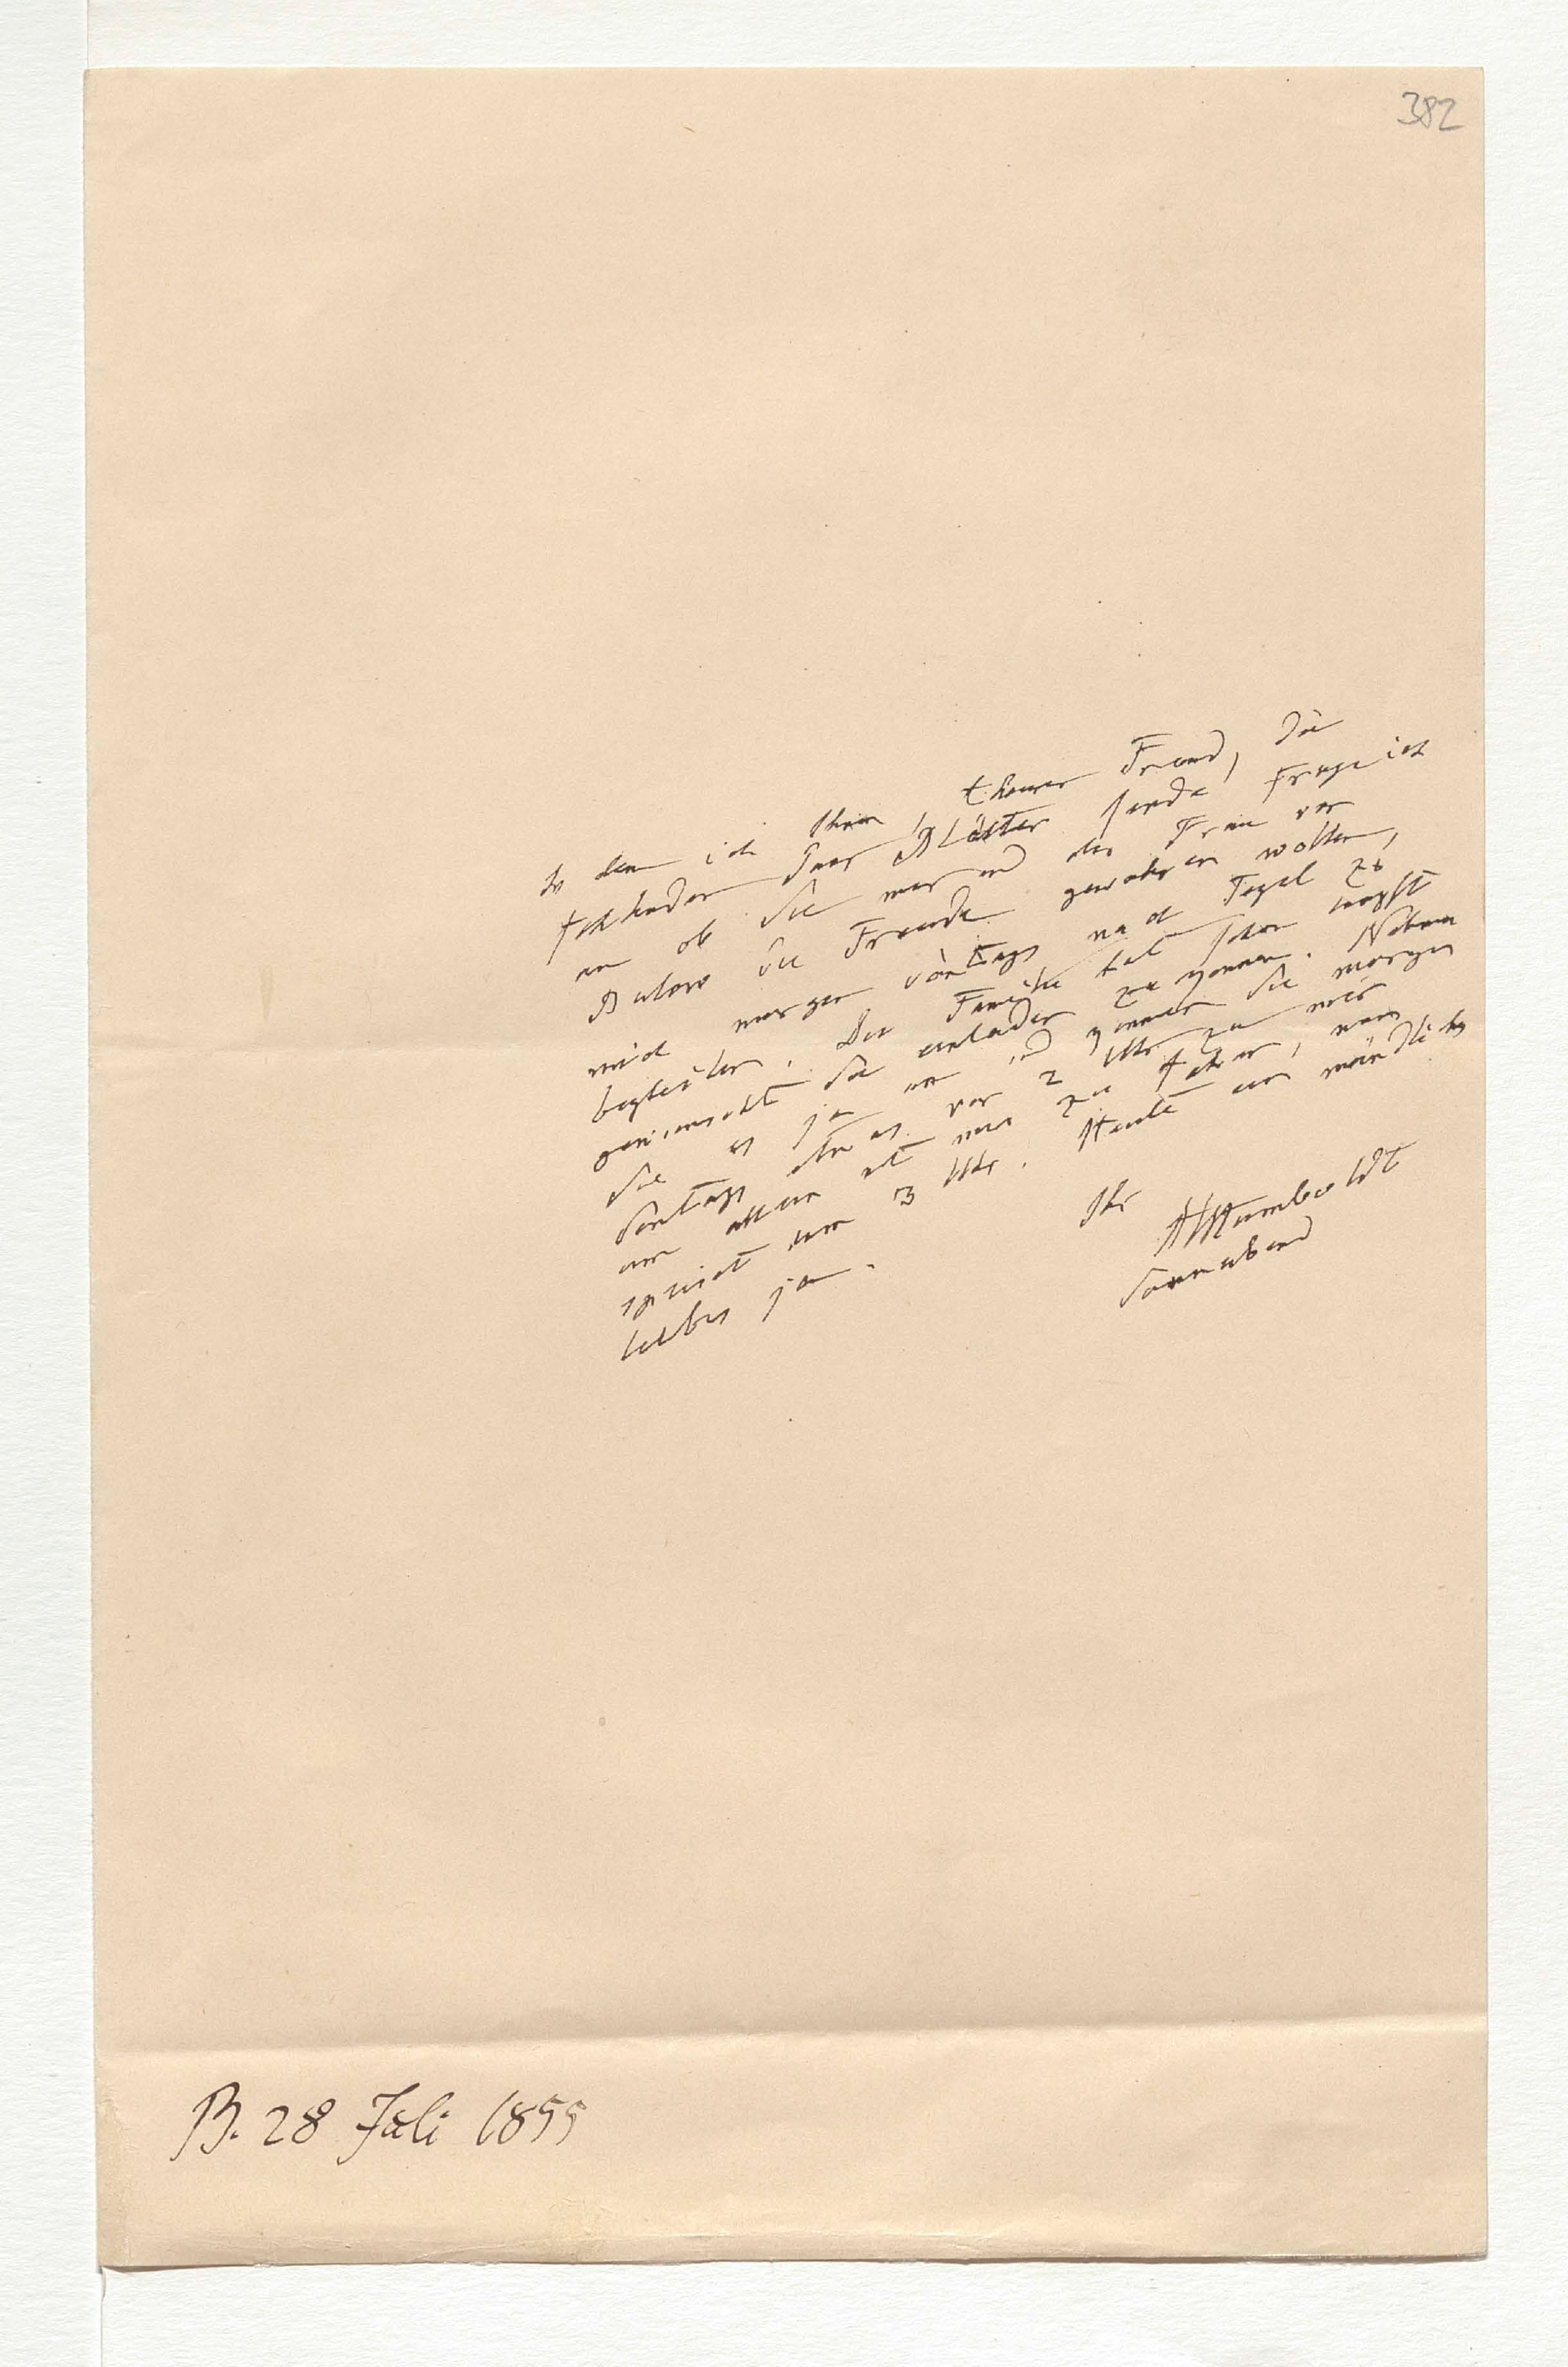 382
In dem ich Ihnen, theurer Freund, die
fehlenden Blätter sende, frage ich
an ob Sie mir und der Frau von
Bülow die Freude gewähren wollen,
mich morgen Sontags nach Tegel zu
begleiten. Die Familie hat schon längst
gewünscht Sie einladen zu können. Nehmen
Sie es ja an und kommen Sie morgen
Sontags etwas vor 2 Uhr zu mir
um allein mit mir zu fahren, man
speist um 3 Uhr. Heute ein mündliches
liebes ja.
Ihr
AHumboldt
Sonnabend
B. 28 Juli 1855